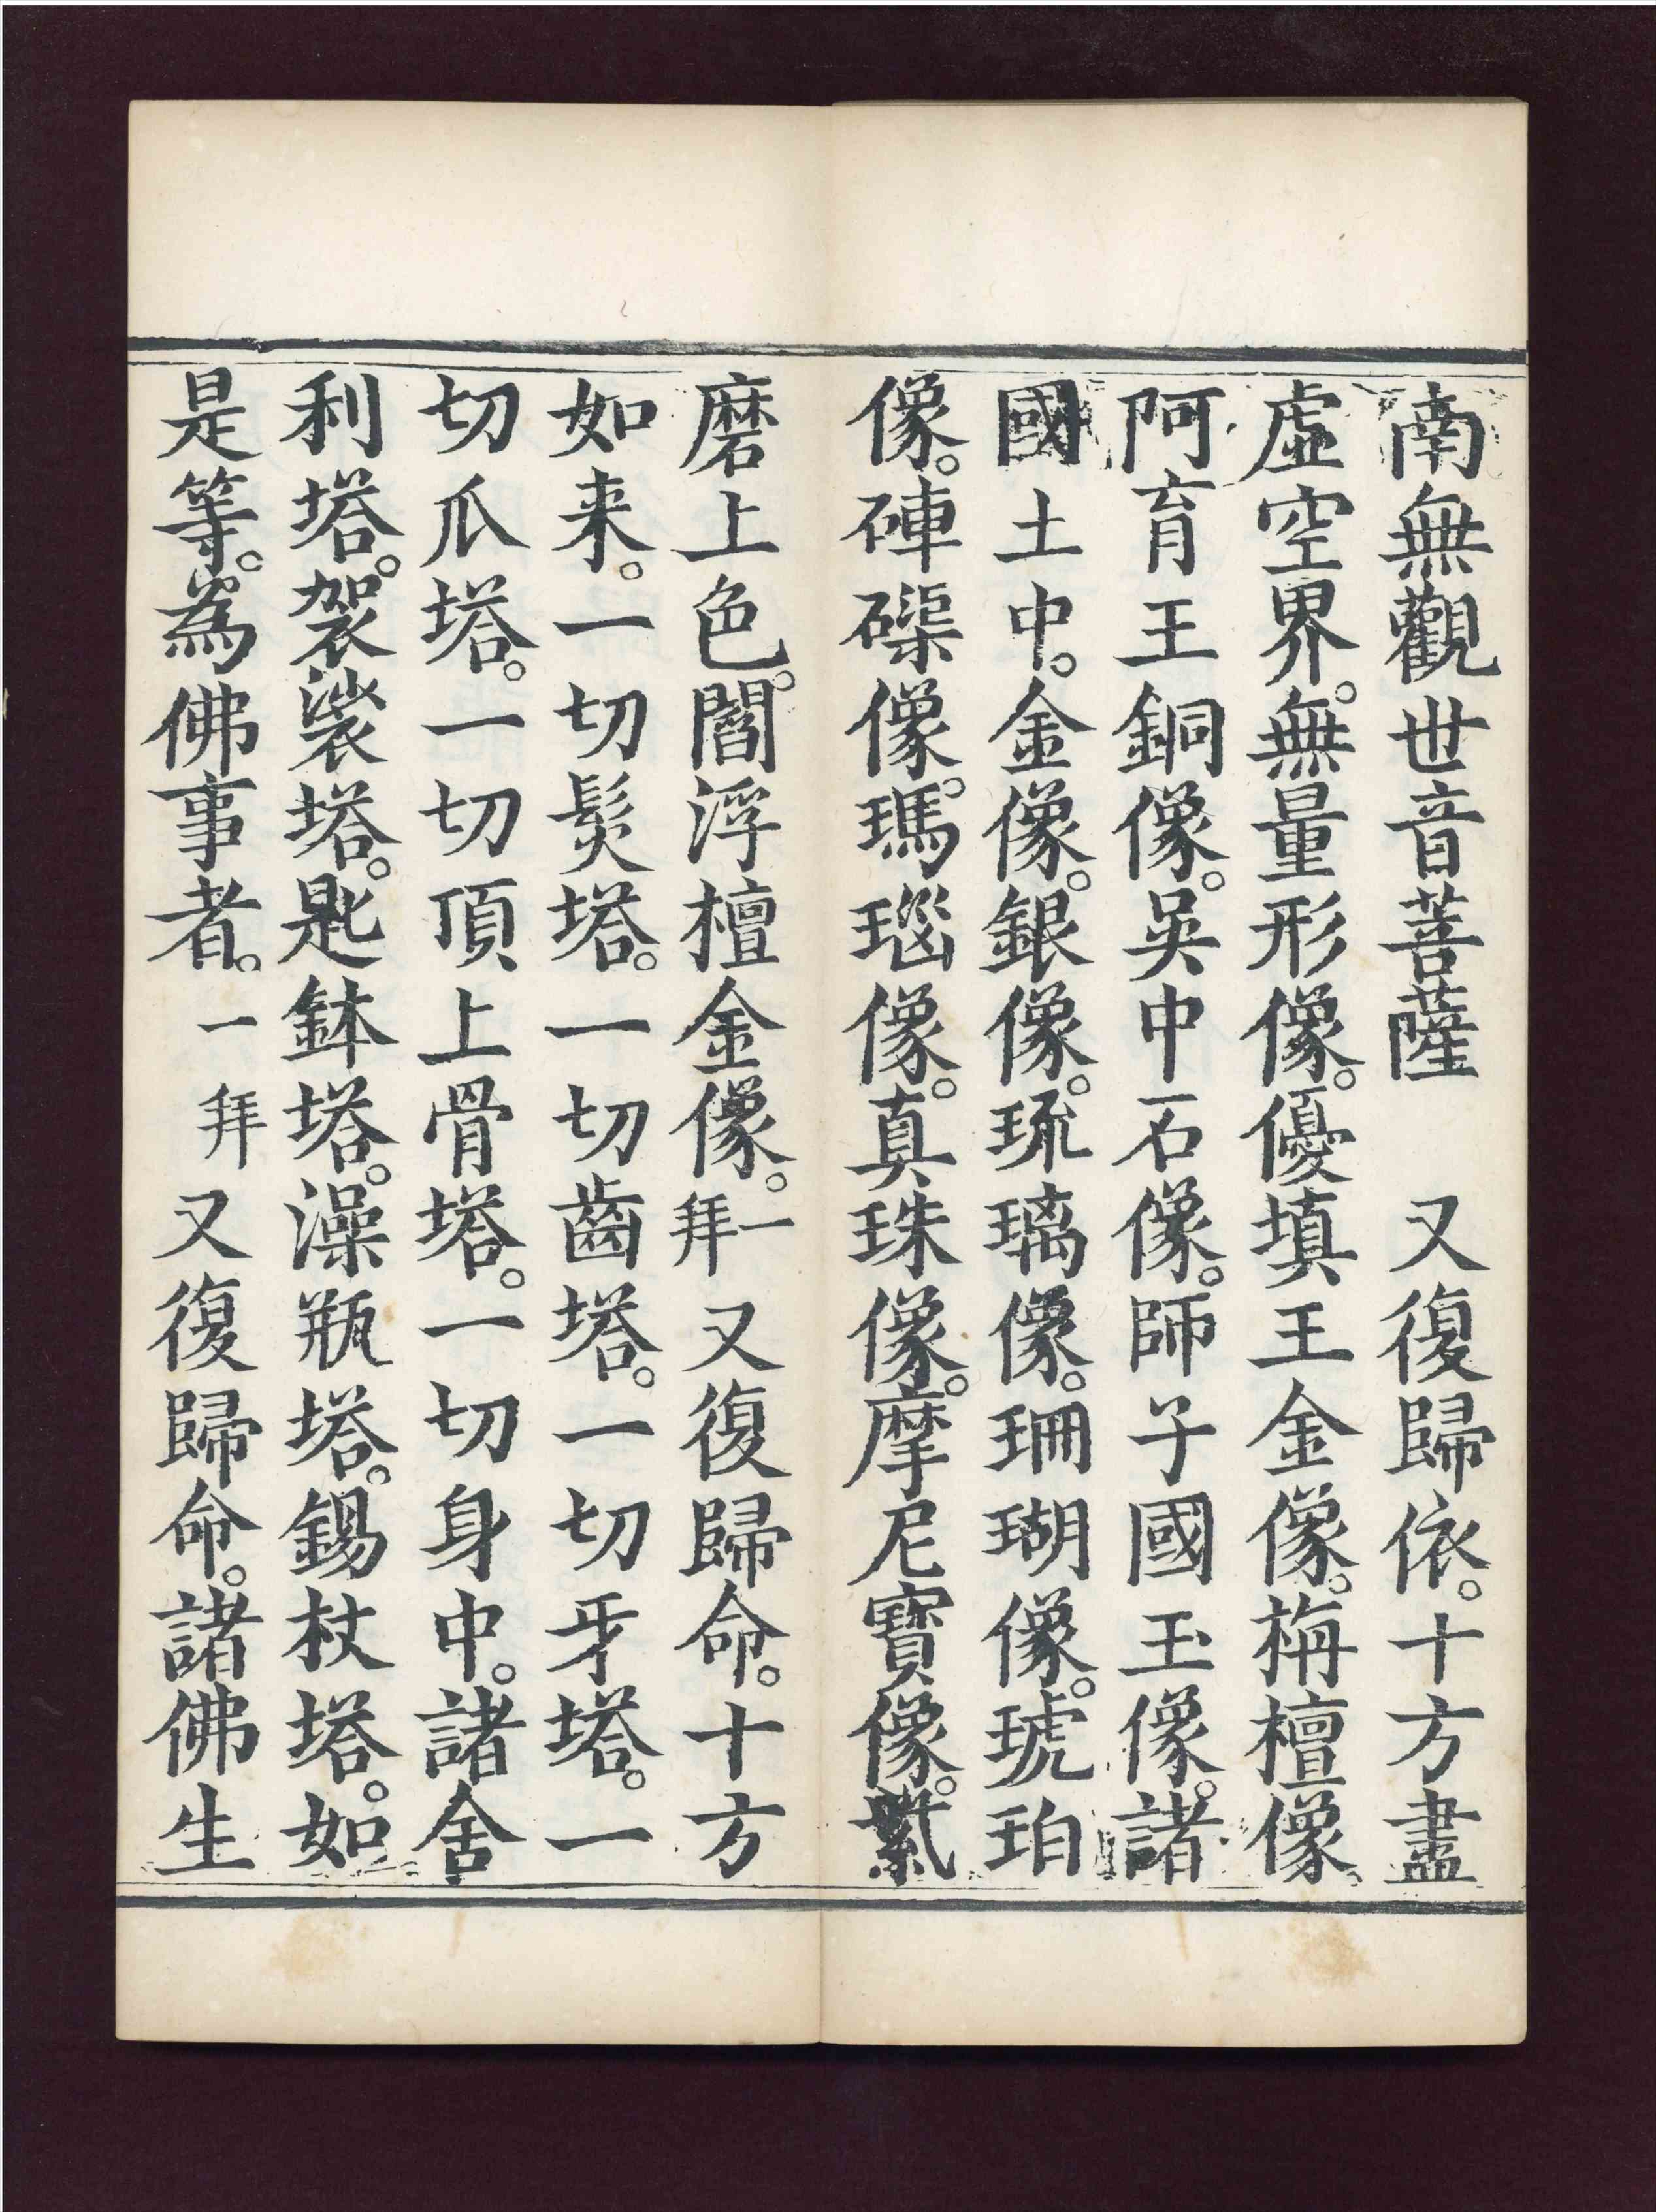 南無觀世音菩薩　又復歸依。十方盡
虛空界。無量形像。優填王金像。栴檀像。
阿育王銅像。吳中石像。師子國玉像。諸
國土中。金像。銀像。琉璃像。珊瑚像。琥珀
像。硨磲像。瑪瑙像。真珠像。摩尼寶像。紫
磨上色。閻浮檀金像。一拜又復歸命。十方
如来。一切髮塔。一切齒塔。一切牙塔。一
切爪塔。一切頂上骨塔。一切身中。諸舍
利塔。袈裟塔。匙鉢塔。澡瓶塔。錫杖塔。如
是等。為佛事者。一拜又復歸命。諸佛生